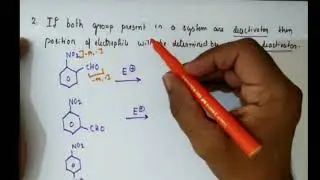 2. If both group present in a system are deactivator then
position of electrophile will be determined by deactivator.
NO₂ ]-M,-I
CHO
-M,-I
E⊕
NO₂
E⊕
CHO
NO₂